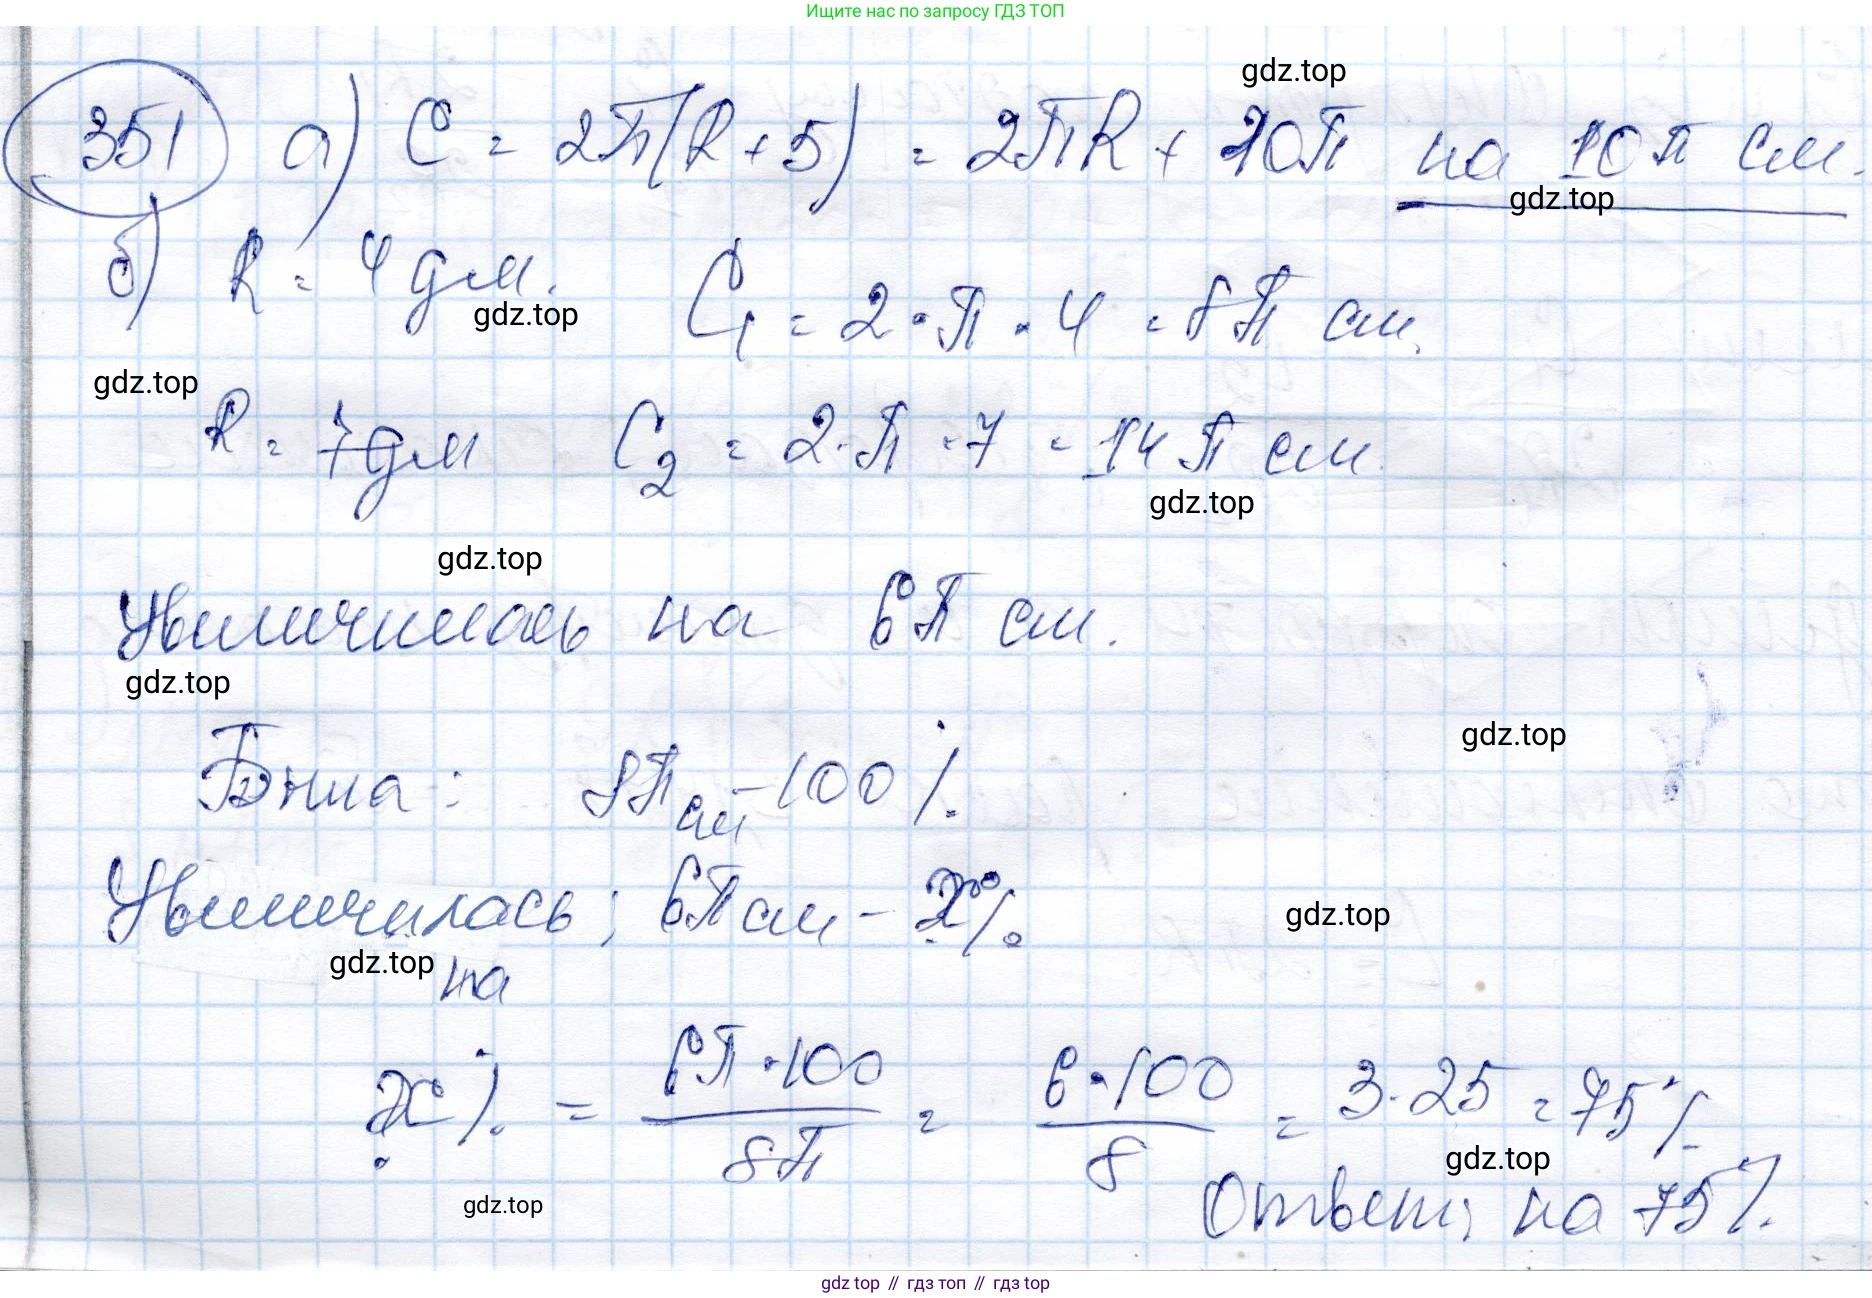 Ищите нас по запросу ГДЗ ТОП
gdz.top
351 а) C = 2π(R + 5) = 2πR + 10π на 10π см.
gdz.top
б) R = 4 дм. C₁ = 2 · π · 4 = 8π см.
gdz.top
gdz.top
R = 7 дм C₂ = 2 · π · 7 = 14π см.
gdz.top
gdz.top
Увеличилась на 6π см.
gdz.top
gdz.top
Была: 8π см - 100%
Увеличилась: 6π см - ?x%
gdz.top
gdz.top
на
?x% = 6π · 100 / 8π = 6 · 100 / 8 = 3 · 25 = 75%
gdz.top
gdz.top
Ответ: на 75%.
gdz top // гдз топ // gdz top